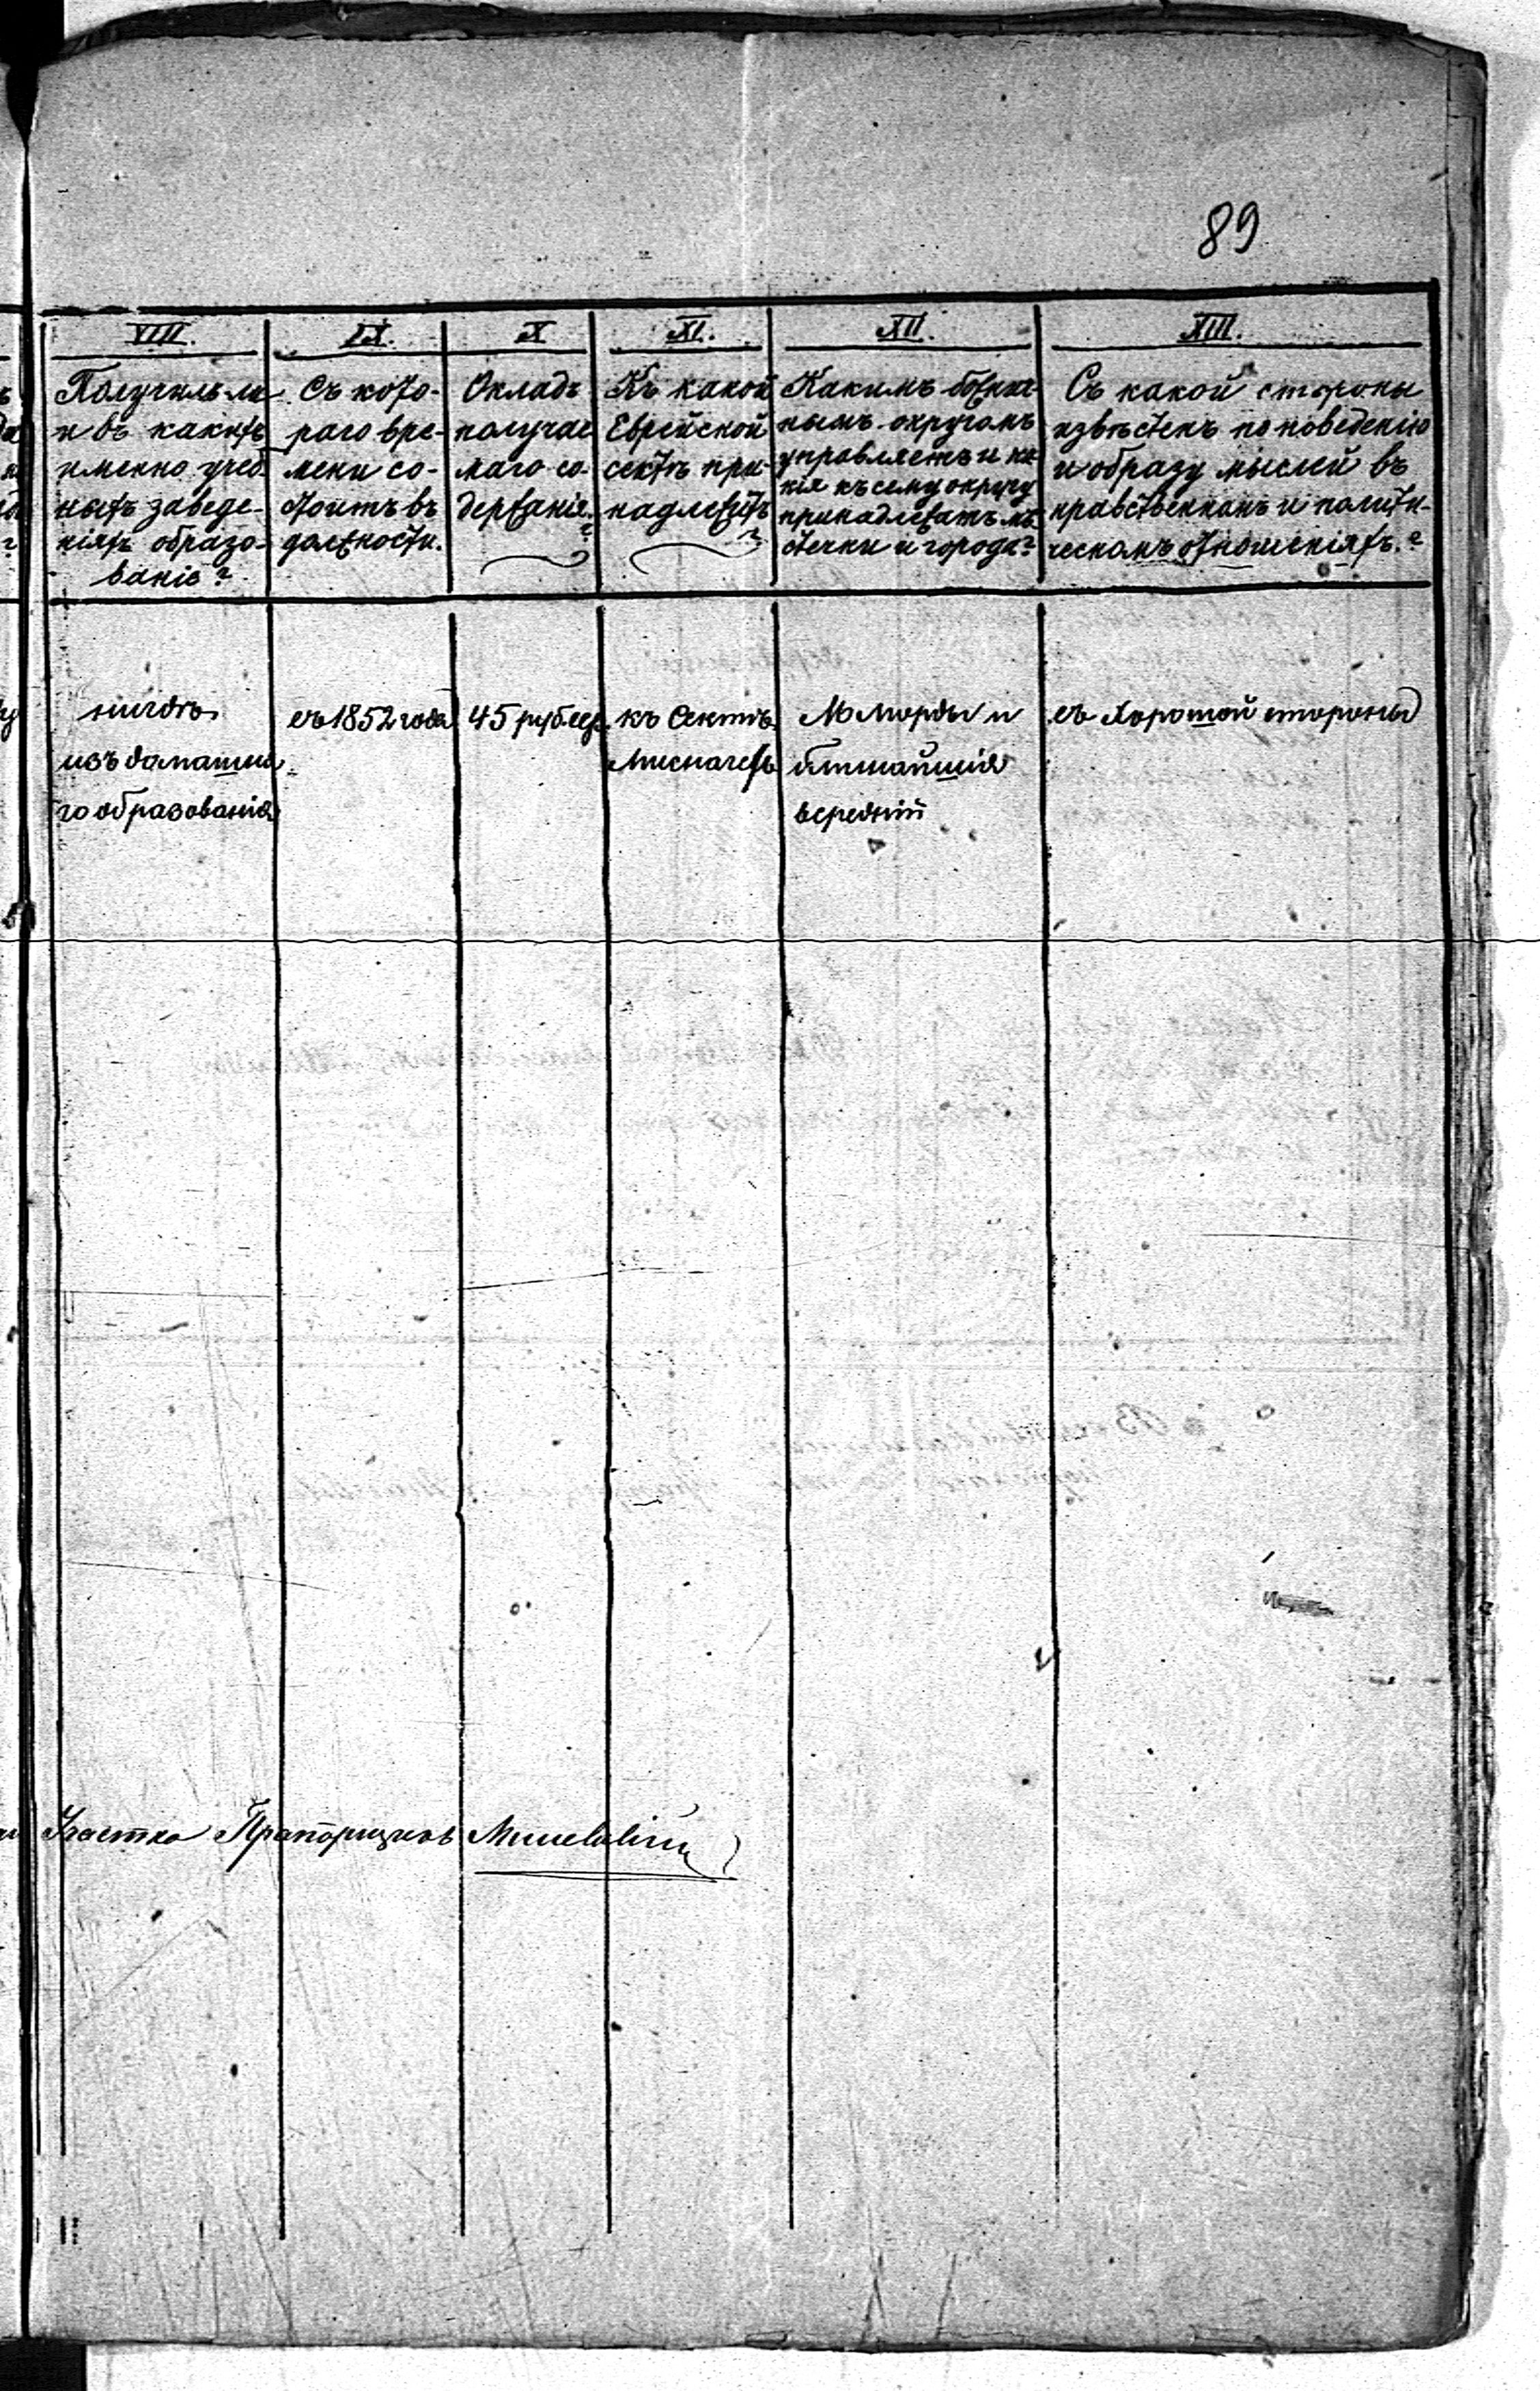 89
VIII.
Получилъ ли
и въ какихъ
именно учеб
ныхъ заведе-
нiяхъ образо-
ванiе?
IX.
Съ кото-
раго вре-
мени со-
стоитъ въ
должности.
X
Окладъ
получае
маго со-
держанiя.?
XI.
Къ какой
Еврейской
сектѣ при-
надлежитъ
?
XII.
Какимъ болнич-
нымъ округомъ
управляетъ и ка-
кiя къ сему округу
принадлежатъ мѣ-
стечки и города?
XIII.
Съ какой стороны
извѣстенъ по поведенiю
и образу мыслей въ
нравственномъ и полити-
ческомъ отношенiяхъ.?
нигдѣ
изъ домашня
го образованiя
съ 1852 года
45 рублей
къ Сектѣ
Миснагедъ
М Морды и
ближайшiя
деревнiй
съ хорошой стороны
Участка Прапорщикъ